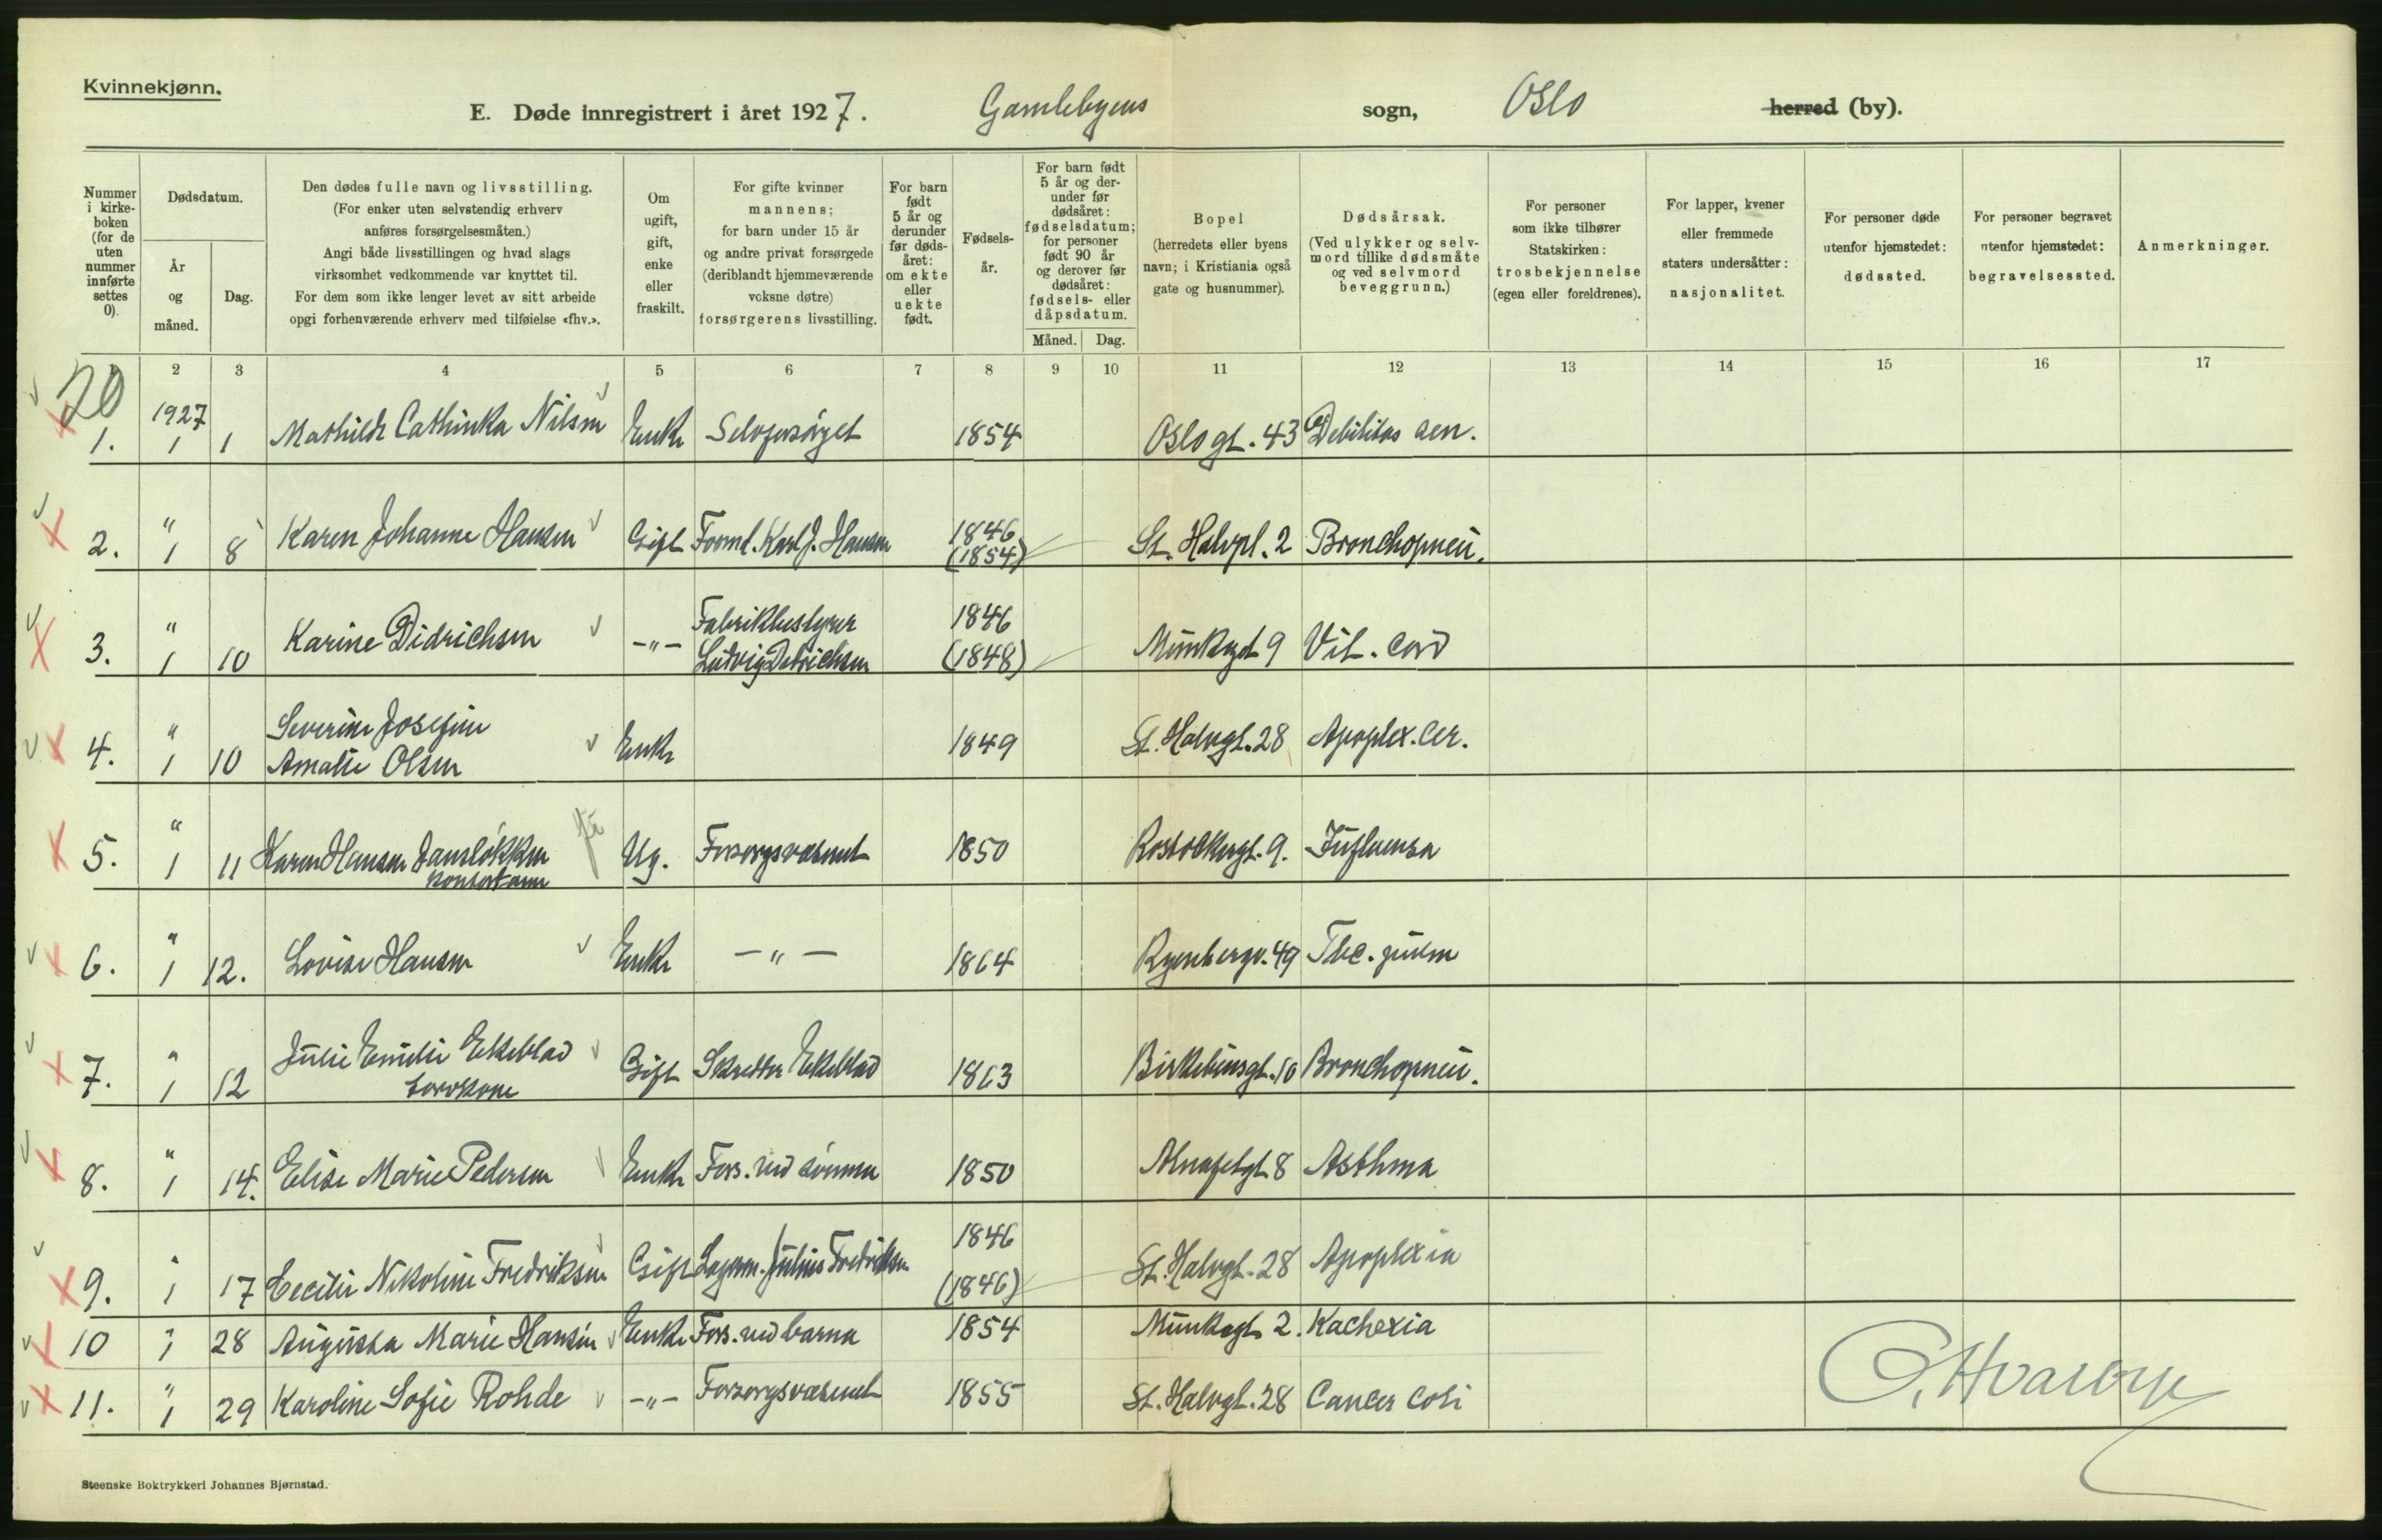 Kvinnekjønn.
E. Døde innregistrert i året 1927. Gamlebyens sogn, Oslo herred (by).
Nummer i kirkeboken (for de uten nummer innførte settes 0).
Dødsdatum.
År og måned.
Dag.
Den dødes fulle navn og livsstilling.
(For enker uten selvstendig erhverv
anføres forsørgelsesmåten.)
Angi både livsstillingen og hvad slags
virksomhet vedkommende var knyttet til.
For dem som ikke lenger levet av sitt arbeide
opgi forhenværende erhverv med tilføielse «fhv.».
Om ugift, gift, enke eller fraskilt.
For gifte kvinner
mannens;
for barn under 15 år
og andre privat forsørgede
(deriblandt hjemmeværende
voksne døtre)
forsørgerens livsstilling.
For barn født 5 år og derunder før dødsåret: om ekte eller uekte født.
Fødselsår.
For barn født 5 år og derunder før dødsåret: fødselsdatum; for personer født 90 år og derover før dødsåret: fødsels- eller dåpsdatum.
Måned.
Dag.
Bopel
(herredets eller byens
navn; i Kristiania også
gate og husnummer).
Dødsårsak.
(Ved ulykker og selvmord tillike dødsmåte
og ved selvmord
beveggrunn.)
For personer
som ikke tilhører
Statskirken:
trosbekjennelse
(egen eller foreldrenes).
For lapper, kvener
eller fremmede
staters undersåtter:
nasjonalitet.
For personer døde
utenfor hjemstedet:
dødssted.
For personer begravet
utenfor hjemstedet:
begravelsessted.
Anmerkninger.
2 3 4 5 6 7 8 9 10 11 12 13 14 15 16 17
20
1927
1. 1 1 Mathilde Cathinka Nilsen Enke Selvforsørget 1854 Oslo gt. 43 Debilitas sen.
2. " 1 8 Karen Johanne Hansen Gift Form. Karl J. Hansen 1846 (1854) St. Halvpl. 2 Bronchopneu.
3. " 1 10 Karine Didrichsen -"- Fabrikbestyrer Ludvig Didrichsen 1846 (1848) Munkegt 9 Vit. cord
4. " 1 10 Severine Josefine Amalie Olsen Enke 1849 St. Halvgt. 28 Apoplex. cer.
5. " 1 11 Karen Hansen Ug. Forsorgsvæsenet 1850 Rostockergt. 9. Influensa
6. " 1 12. Lovise Hansen Enke -"- 1864 Ryenbergv. 49 Tbc. pulm
7. " 1 12 Julie Emilie Ekeblad Gift Skredder Ekeblad 1863 Birkebeinsgt. 10 Bronchopneu.
8. " 1 14. Elise Marie Pedersen Enke Fors. ved sønnen 1850 Alnafetgt 8 Asthma
9. 1 17 Cecilie Nikoline Fredriksen Gift Lagerm. Julius Fredriksen 1846 (1846) St. Halvgt. 28 Apoplexia
10 1 28 Augusta Marie Hansen Enke Fors. ved barna 1854 Munkegt 2. Kachexia
11. " 1 29 Karoline Sofie Rohde -"- Forsorgsvæsenet 1855 St. Halvgt. 28 Cancer coli
Steenske Boktrykkeri Johannes Bjørnstad.